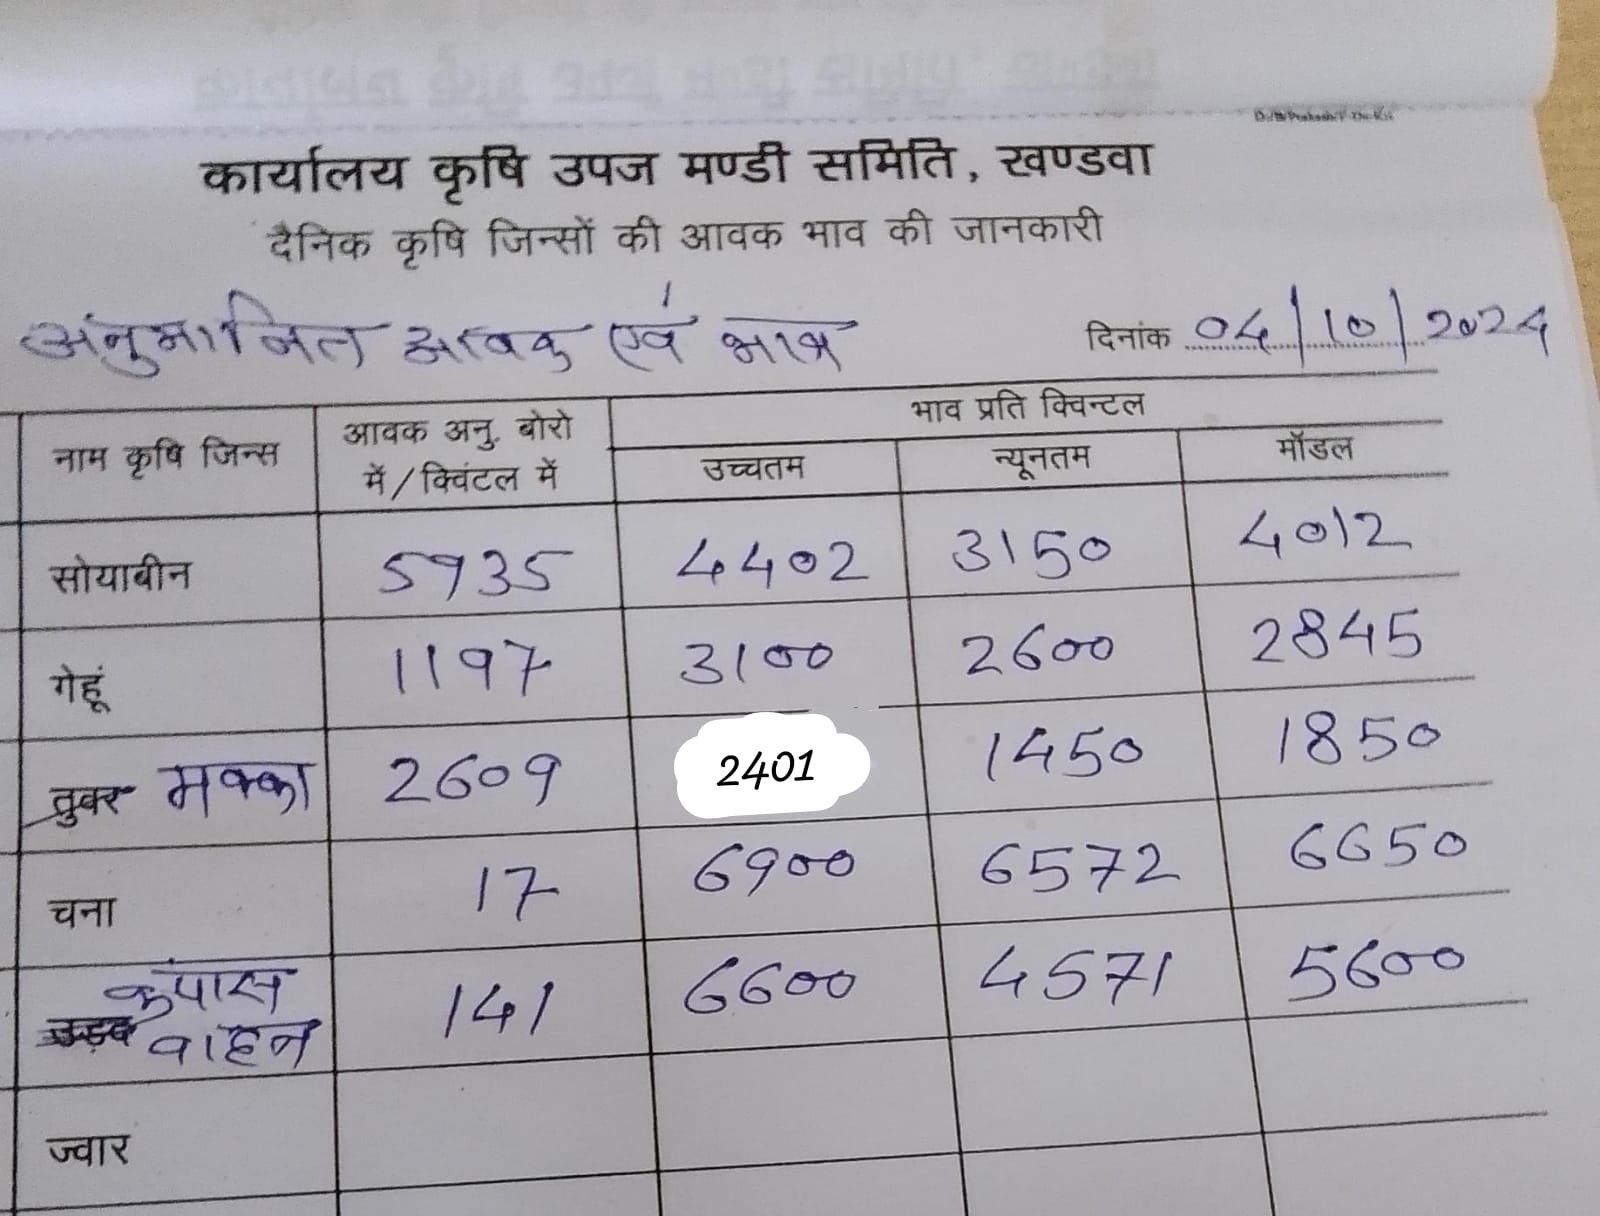 कार्यालय कृषि उपज मण्डी समिति, खण्डवा
दैनिक कृषि जिन्सों की आवक भाव की जानकारी
अनुमानित आवक एवं भाव दिनांक 04/10/2024
नाम कृषि जिन्स आवक अनु. बोरो में/क्विंटल में भाव प्रति क्विन्टल
उच्चतम न्यूनतम मॉडल
सोयाबीन 5935 4402 3150 4012
गेहूं 1197 3100 2600 2845
तुवर मक्का 2609 2401 1450 1850
चना 17 6900 6572 6650
उड़द कपास वाहन 141 6600 4571 5600
ज्वार